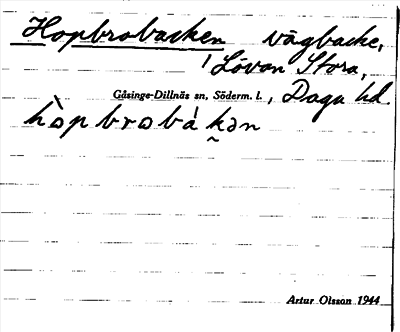 Hopbrobacken vägbacke,
Lövan Stora,
Gåsinge-Dillnäs sn, Söderm. l., Daga hd.
hòpbrobákən
Artur Olsson 1944